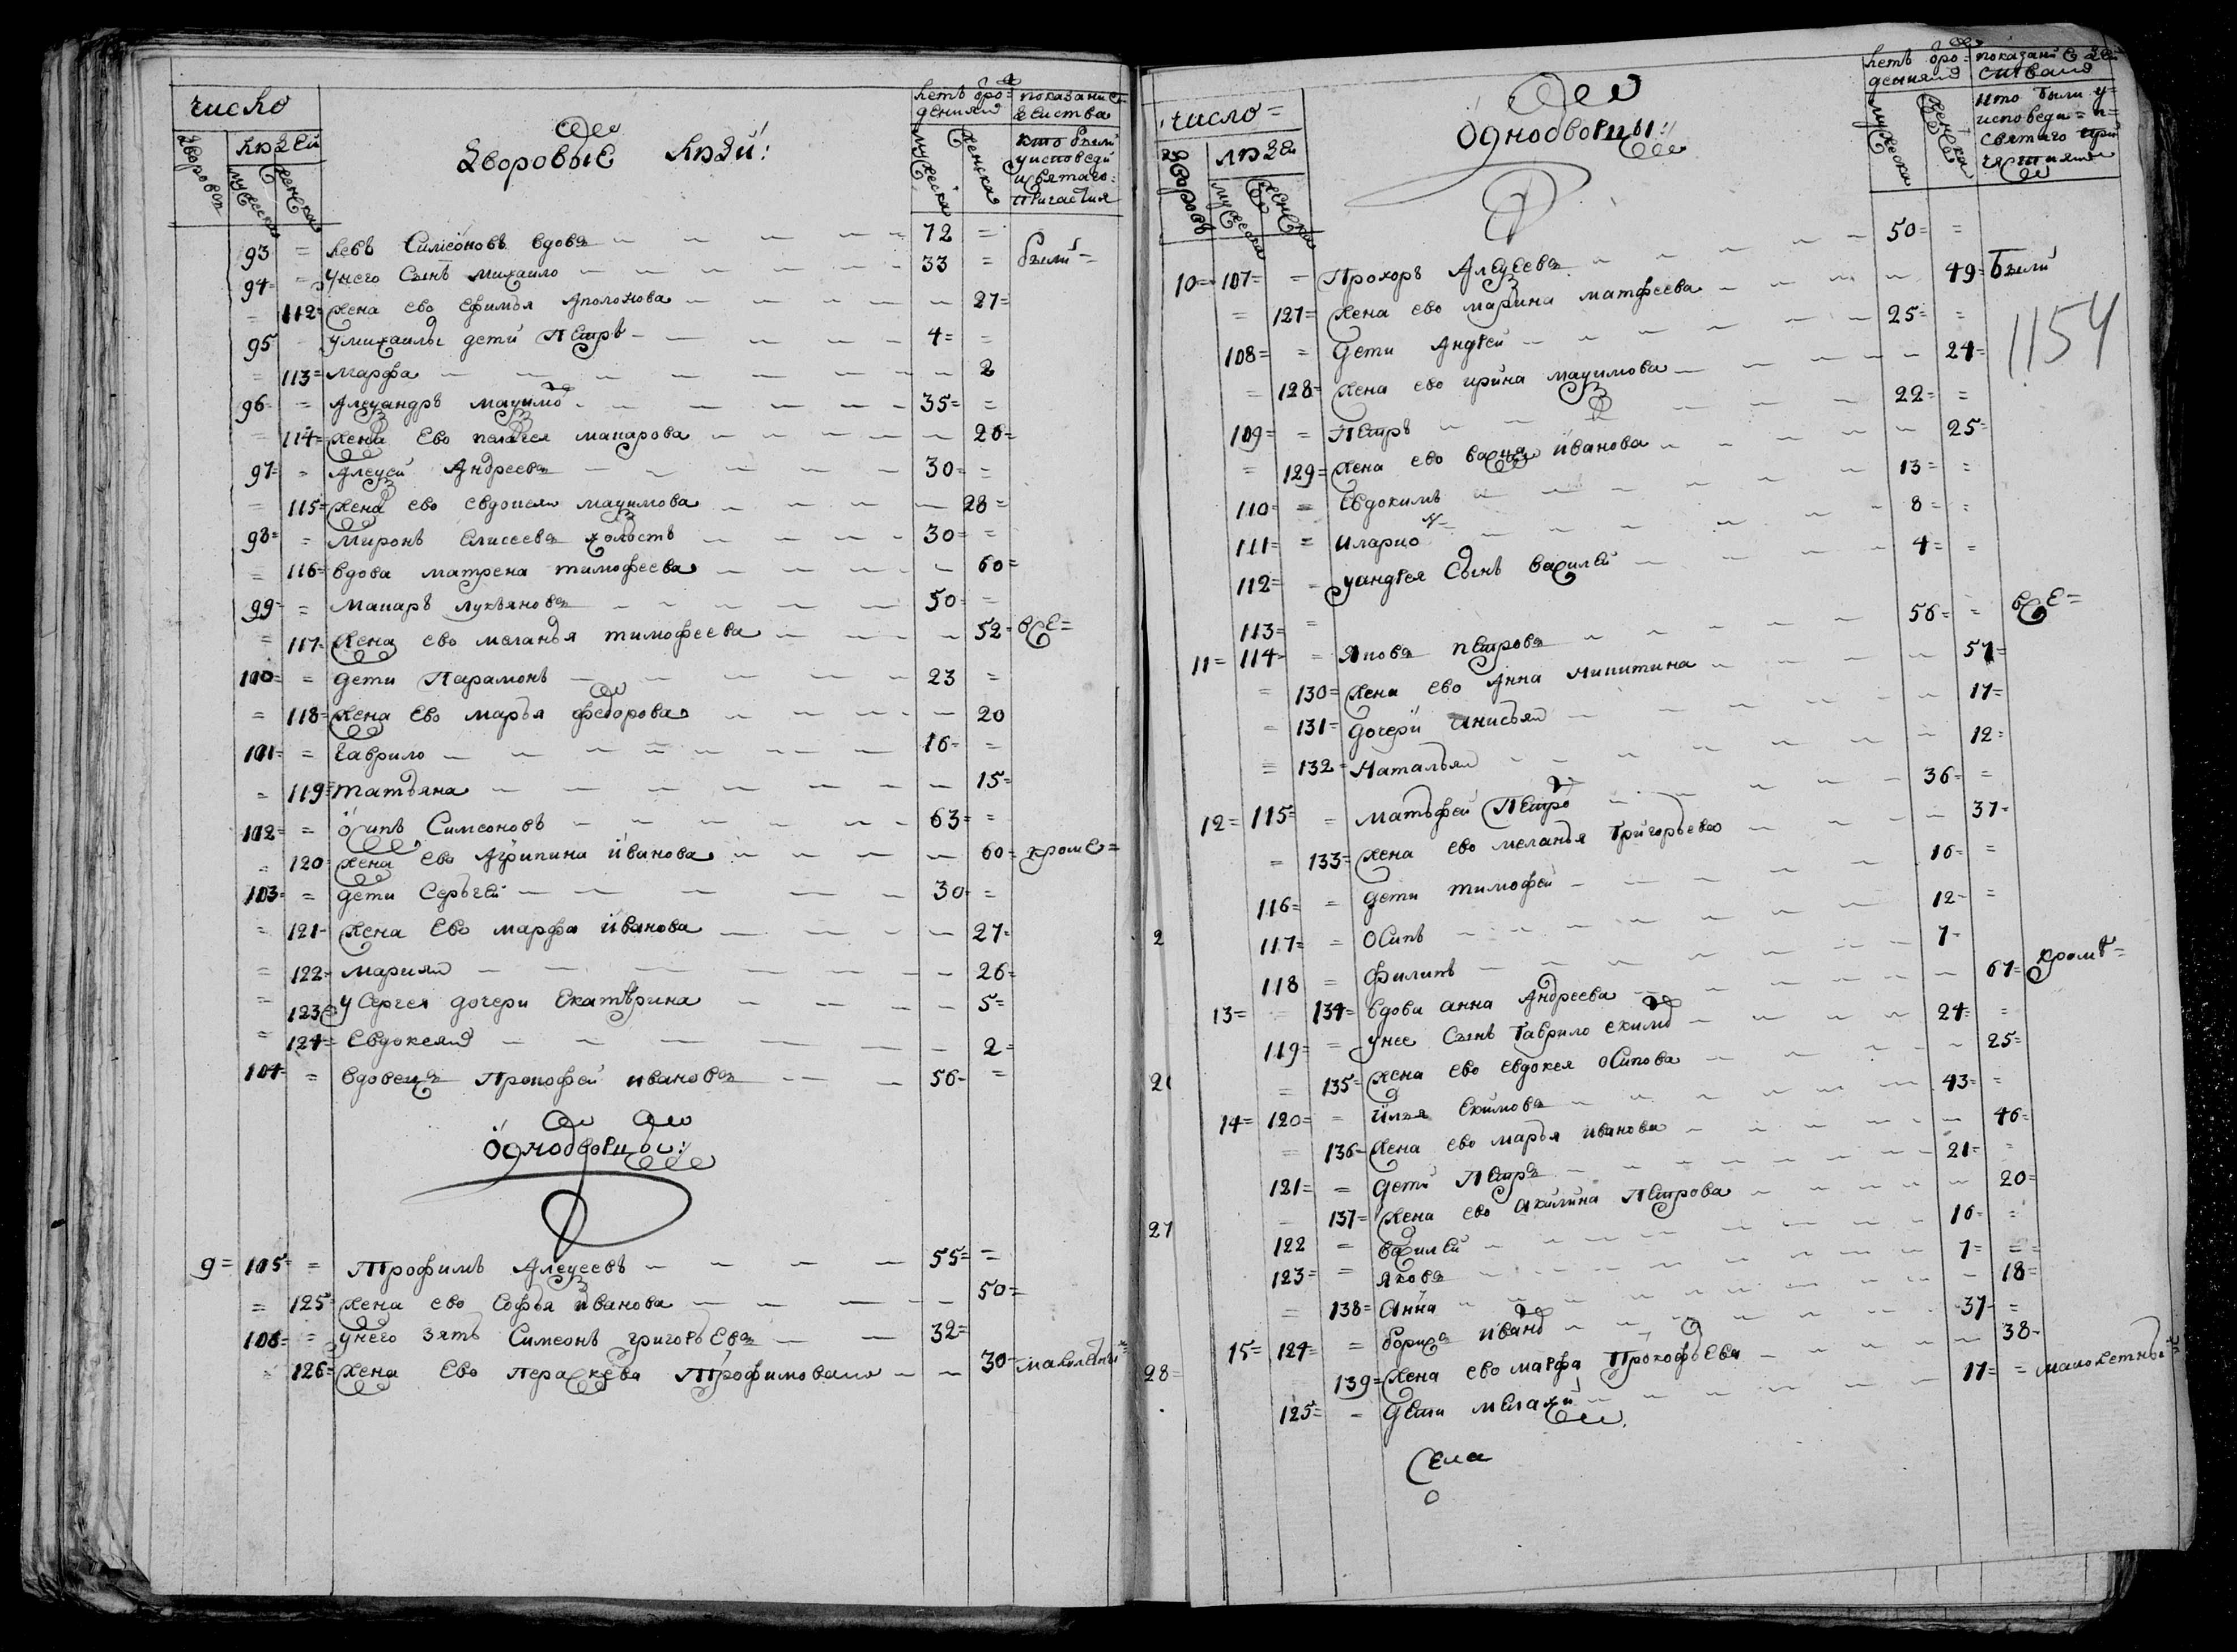 число
дворовъ
людей
мужеска
женска
Дворовые люди:
летъ от рождения
мужеска
женска
показание действа
кто были
у исповеди
и святаго
причастия
93 = левъ Симеоновъ вдовъ 72 = были =
94 = = у него сынъ михаило 33 =
= 112 = жена ево ефимья Аполонова 27 =
95 у михаилы дети Петръ 4 = =
= 113 = марфа 2
96 = Алеѯандръ маѯимо 35 = =
= 114 = жена Ево пелагея макарова 26 =
97 = = Алеѯей Андреевъ 30 = =
= 115 = жена ево евдокея маѯимова 28 =
98 = = Миронъ Елисеевъ холостъ 30 = =
= 116 = вдова матрена тимофеева 60 =
99 = = макаръ лукьяновъ 50 = =
= 117 = жена ево меланья тимофеева 52 = все =
100 = = дети Парамонъ 23 =
= 118 = жена Ево марья федорова 20
101 = = Гаврило 16 = =
= 119 = татьяна 15 =
102 = = Осипъ Симеоновъ 63 = =
= 120 = жена ево Агрипина иванова 60 = кроме =
103 = = дети Сергей 30 = =
= 121 = жена Ево марфа иванова 27 =
= 122 = мария 26 =
= 123 у Сергея дочери Екатѣрина 5 =
= 124 = Евдокея 2 =
104 = = вдовецъ Прокофей ивановъ 56 = =
Однодворцы:
9 = 105 = = Трофимъ Алеѯеевъ 55 = =
= 125 = жена ево Софья иванова 50 =
106 = = у него зять Симеонъ григорьЕвъ 32 =
= 126 = жена Ево параскева Трофимова 30 = малолетны
число =
дворовъ
людей
мужеска
женска
Однодворцы:
летъ от рождения
мужеска
женска
показание действа
кто были у
исповеди и
святаго при
частия
10 = 107 = = Прохоръ Алеѯеевъ 50 = =
= 127 = жена ево марина матфеева 49 = Были
1154
108 = = дети Андрей 25 = =
= 128 = жена ево ирина маѯимова 24 =
109 = = Петръ 22 = =
= 129 = жена ево иванова 25 =
110 = = Евдокимъ 13 = =
111 = = Иларио 8 = =
112 = = у андрея Сынъ василей 4 = =
113 = =
11 = 114 = = Яковъ петровъ 56 = = все =
= 130 = жена ево Анна Никитина 51 =
= 131 = дочери Анисья 17 =
= 132 = Наталья 12 =
12 = 115 = = матьфей Петро 36 = =
= 133 = жена ево меланья Григорьева 37 =
116 = = дети тимофей 16 = =
2
117 = = Осипъ 12 = =
118 = филипъ 7 =
13 = = 134 = вдова анна Андреева 67 = кромѣ =
119 = = у нее Сынъ Гаврило екимо 24 = =
= 135 = жена ево евдокея осипова 25 =
14 = 120 = = илья Екимовъ 43 = =
= 136 = жена ево марья иванова 46 =
121 = = дети Петръ 21 = =
= 137 = жена ево акилина Петрова 20 =
27
122 = василей 16 = =
123 = = яковъ 7 = =
= 138 = Анна 18 =
15 = 124 = = борисъ ивано 37 = =
28 =
139 = жена ево марфа ПрокофьЕва 38 =
125 = = дети мЕлахий 17 = = малолетны
Села